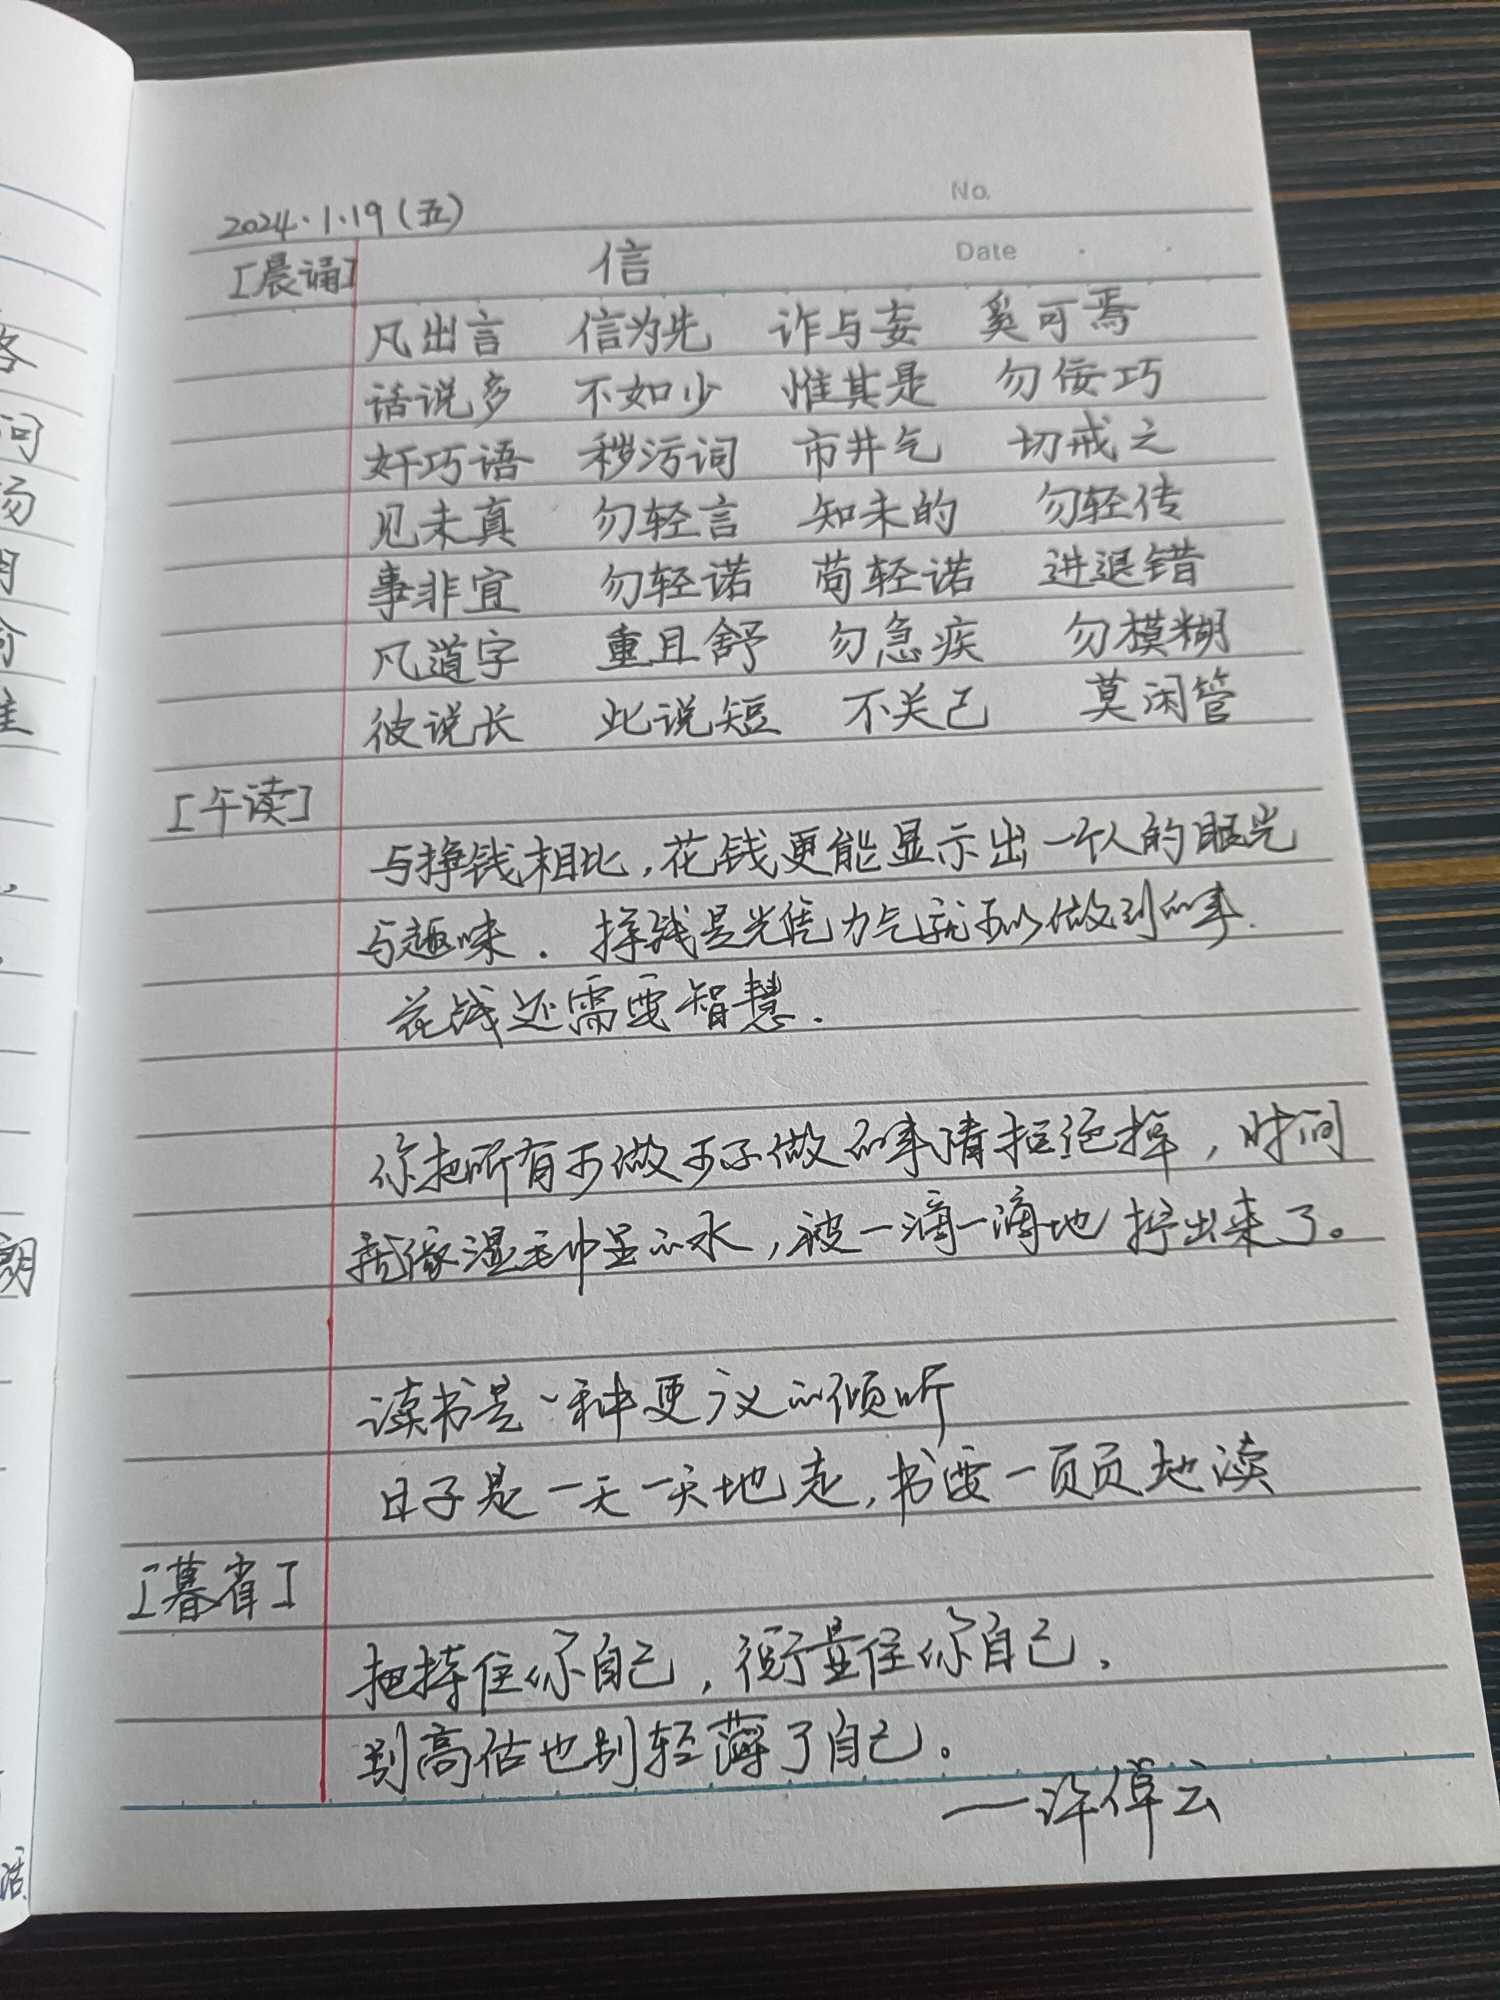 2024.1.19(五)
No.
[晨诵] 信
Date
凡出言 信为先 诈与妄 奚可焉
话说多 不如少 惟其是 勿佞巧
奸巧语 秽污词 市井气 切戒之
见未真 勿轻言 知未的 勿轻传
事非宜 勿轻诺 苟轻诺 进退错
凡道字 重且舒 勿急疾 勿模糊
彼说长 此说短 不关己 莫闲管
[午读]
与挣钱相比,花钱更能显示出一个人的眼光
与趣味.挣钱是光凭力气就可以做到的事.
花钱还需要智慧.
你把所有可做可不做的事情拒绝掉,时间
就像湿毛巾里的水,被一滴一滴地拧出来了。
读书是一种更广义的倾听
日子是一天一天地走,书要一页页地读
[暮省]
把持住你自己,衡量住你自己,
别高估也别轻薄了自己。
——许倬云